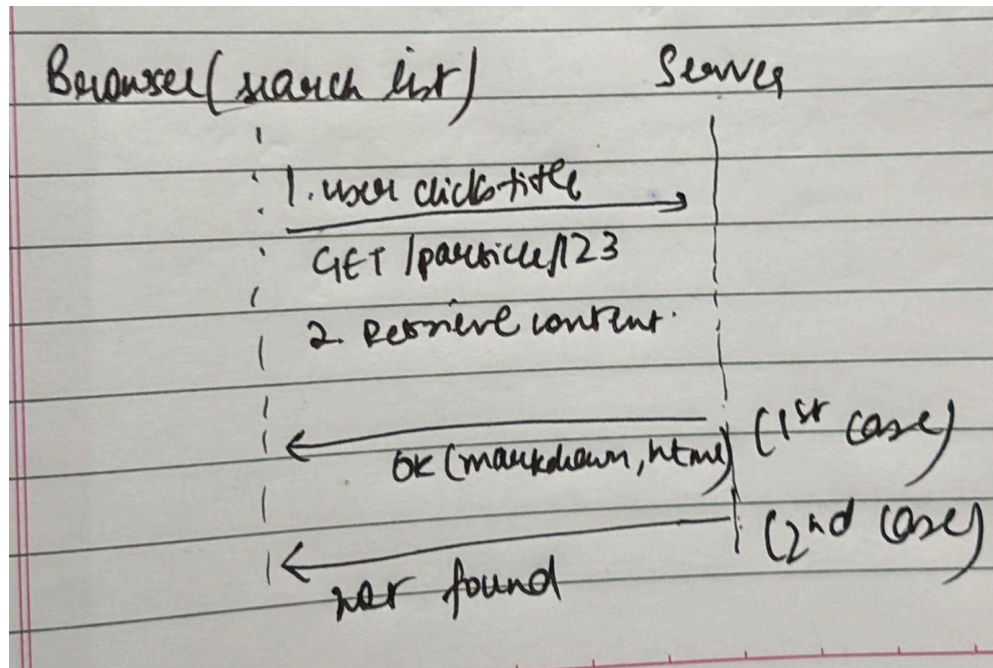 Browser (search list)
Server
1. user clicks title
GET /particle/123
2. Retrieve content.
OK (markdown, html)
(1st case)
not found
(2nd case)